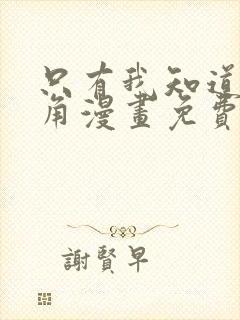 只有我知道
角漫畫免費
謝賢早